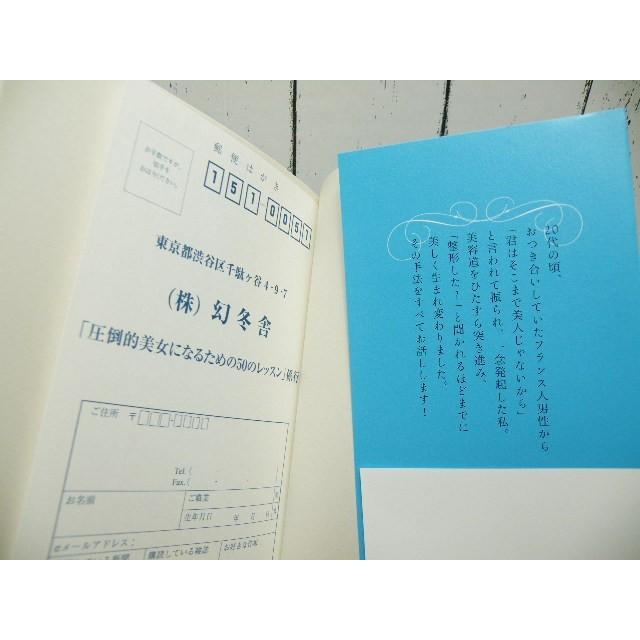 郵便はがき
お手数ですが、
切手を
お貼りください。
151-0051
東京都渋谷区千駄ヶ谷4-9-7
(株) 幻冬舎
「圧倒的美女になるための50のレッスン」係行
ご住所
〒□□□-□□□□
Tel.(
Fax.(
お名前
ご職業
生年月日
年
月
日
eメールアドレス:
購読している雑誌
お好きな作家
20代の頃、
おつき合いしていたフランス人男性から
「君はそこまで美人じゃないから」
と言われて振られ、一念発起した私。
美容道をひたすら突き進み、
「整形した?」と聞かれるほどまでに
美しく生まれ変わりました。
その手法をすべてお話しします!